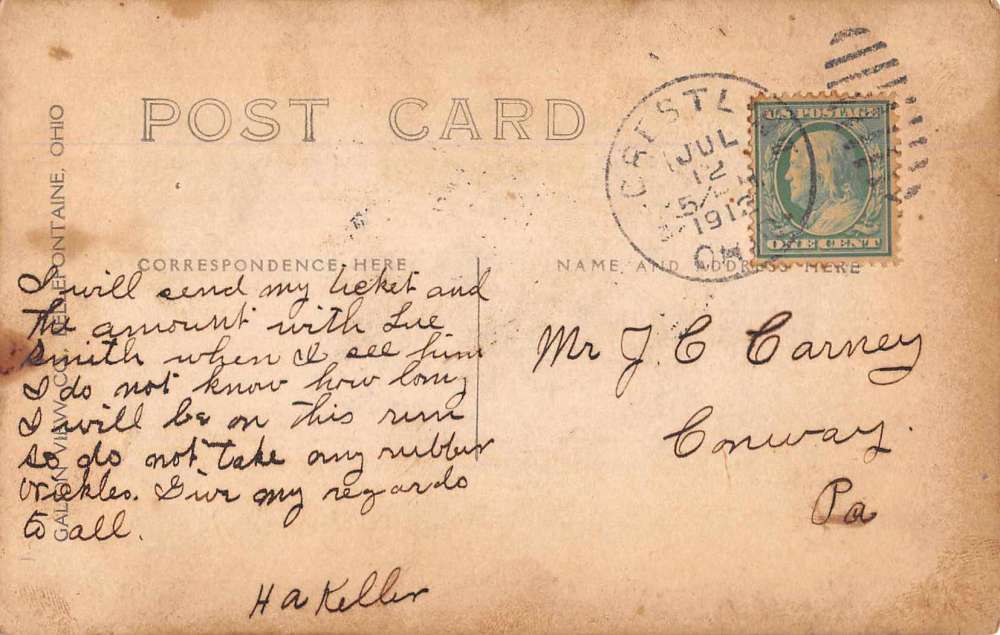 POST CARD
CRESTL
JUL
12
5
191
U.S. POSTAGE
ONE CENT
CORRESPONDENCE HERE
NAME AND ADDRESS HERE
I will send my ticket and
the amount with Lue
Smith when I see him
I do not know how long
I will be on this run
so do not take any rubber
nickles. Give my regards
to all.
H a Keller
Mr J. C Carney
Conway.
Pa
GALION VIEW CO. BELLEFONTAINE, OHIO